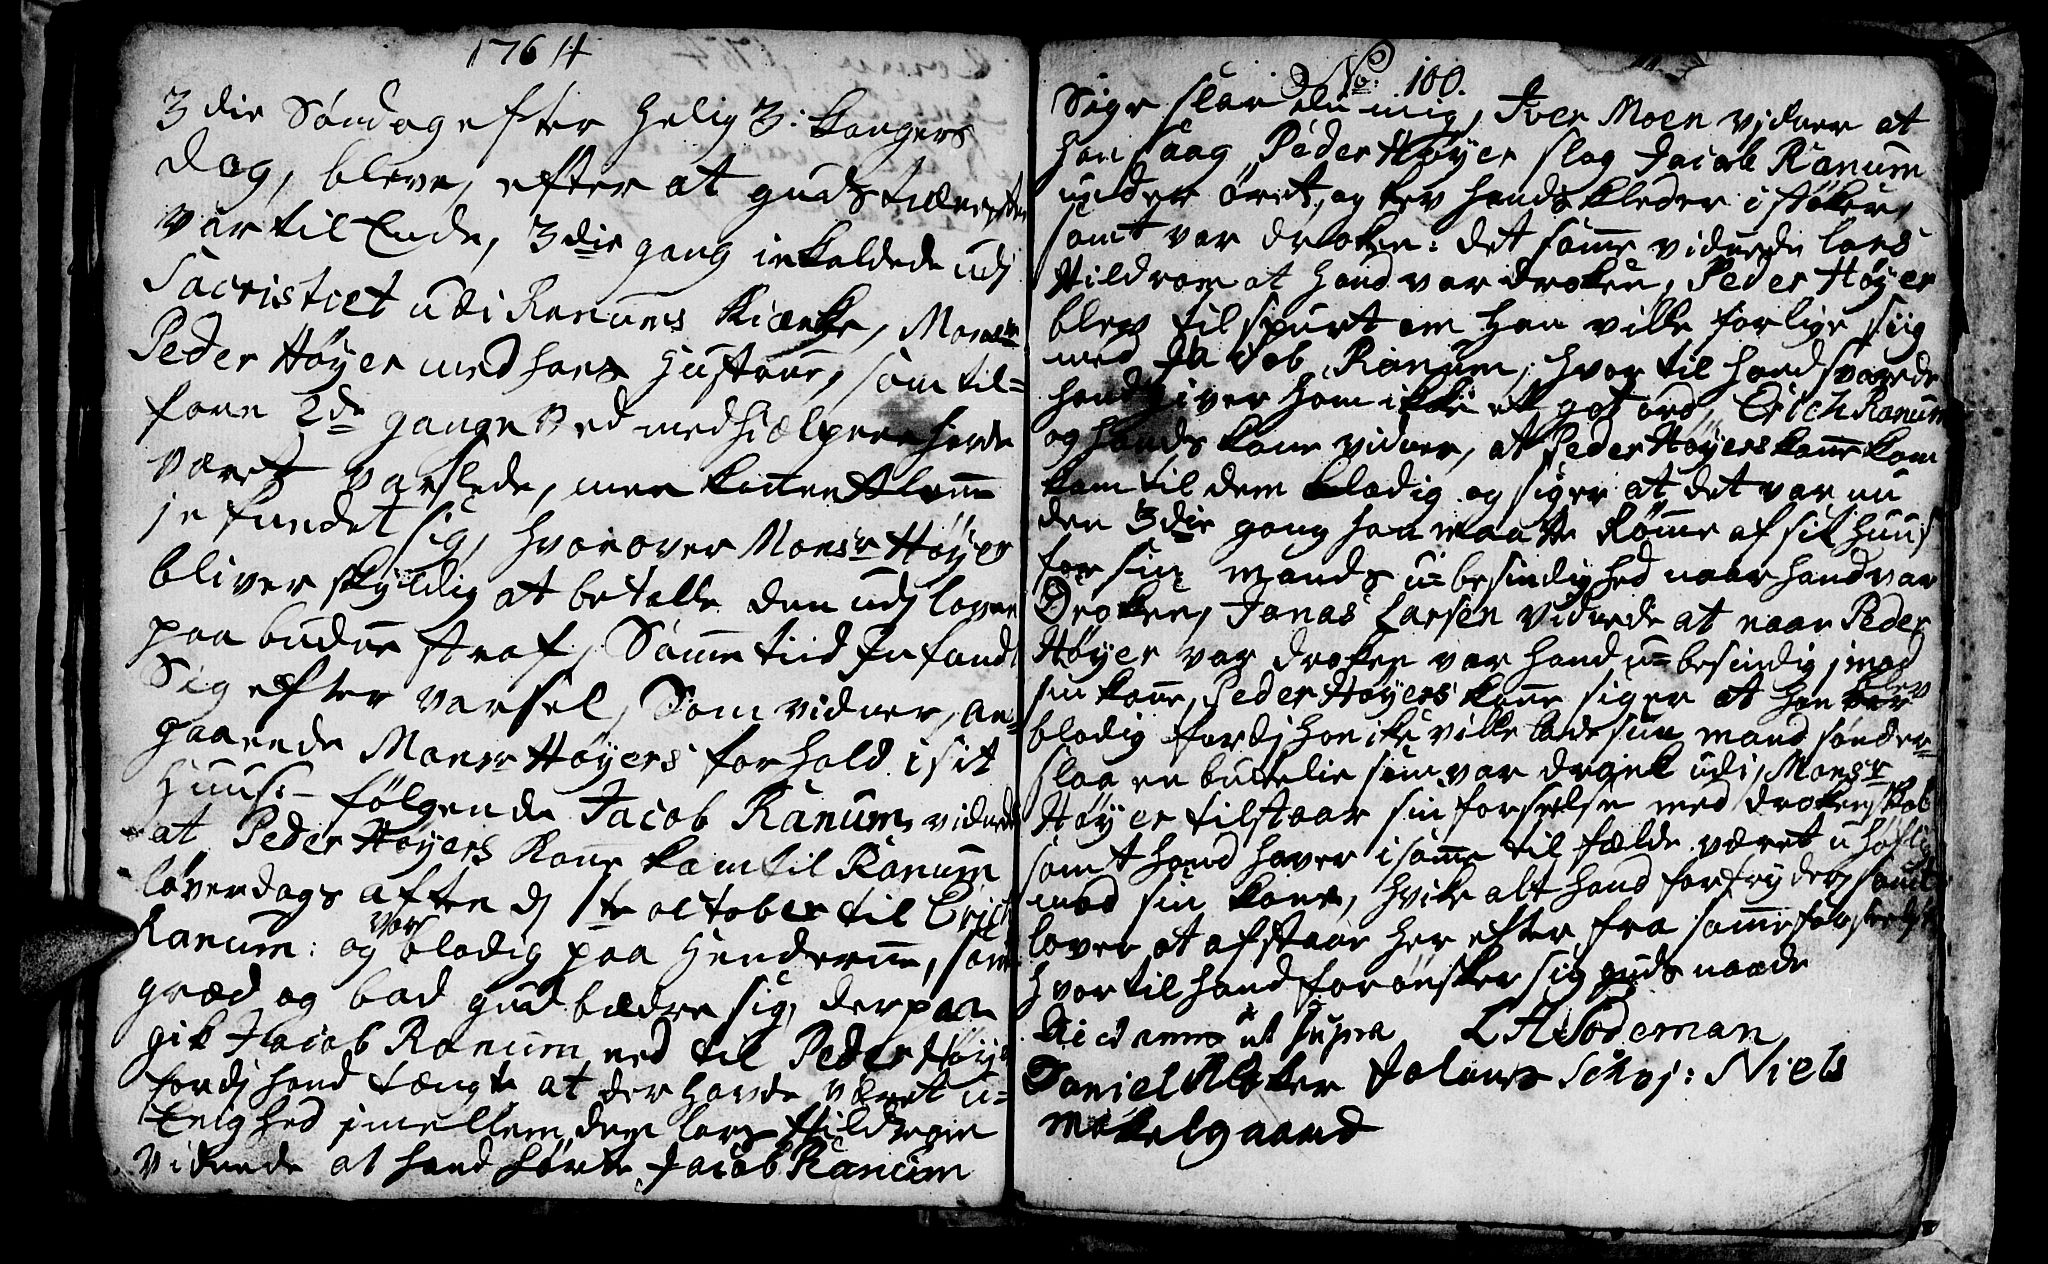 1764
3die Søndag efter Hellig 3: Konger
dag, bleve, efter at gudstienesten
var til Ende, 3die gang inkaldede udj
Sacristiet udi Ranums Kircke, Monsr
Peder Høyer med hans Hustrue, som til=
forn 2de gange ved medhielperne hafde
været varslede, men
je fundet sig, hvorover Monsr Høyer
bliver skyldig at betalle den udj loven
paa budne straf, Samme tiid Jnfandt
Sig efter varsel, Som vidner, an=
gaaende Monsr Høyers forhold i sit
Huus:- følgende Jacob Ranum, vidnede
at Peder Høyers Kone kom til Ranum
løverdags aften dj 1te october til Erich
Ranum: og var blodig paa Henderne, samt
græd og bad gud bædre sig, derpaa
gik Jacob Ranum ned til Peder Høyer
fordj hand tængte at der havde været u=
Enighed jmellem dem lars Hildrem
vidnede at hand hørte Jacob Ranum
No: 100.
Sige slar du mig, Iver Moen vidner at
han saag Peder Høyer slog Jacob Ranum
under øret, og rev hands kleder i støker,
samt var droken: det samme vidnede lars
Hildrom at hand var droken, Peder Høyer
blev tilspurt om han ville forlige siig
med Jacob Ranum, hvor til hand svarede
hand giver ham ikke et got ord, Erich Ranum
og hands kone vidner, at Peder Høyers kone kom
kom til dem blodig og siger at det var nu
den 3die gang hon maatte Rømme af sit huus
for sin mands u=besindighed naar hand var
Droken, Jonas Larsen vidnede at naar Peder
Høyer var droken var hand u=besindig jmod
sin kone, Peder Høyers kone siger at hon blev
blodig fordj hon ike ville lade sin mand sønder=
slaa en butelie som var drank udi, Monsr
Høyer tilstaar sin forseelse med drokenskab
samt hand haver i samme til fælde været uhøflig
mod sin kone, hvilket alt hand fortryder, samt
lover at afstaar her efter fra samme forseelse
hvortil hand forønsker sig guds naade
ut supra L H Sodeman
Daniel Johans Schoj: Niels
Mekelgaard